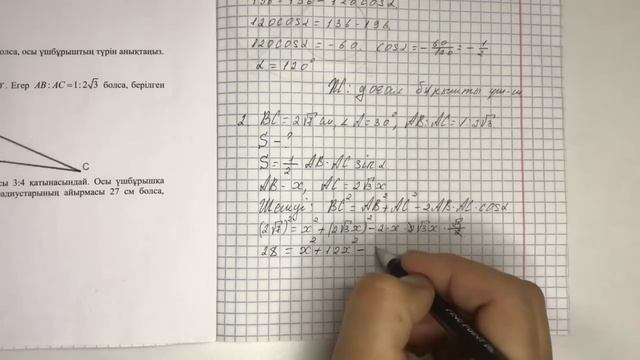 болса, осы үшбұрыштың түрін анықтаңыз.
Егер AB : AC = 1 : 2√3 болса, берілген
C
3:4 қатынасындай. Осы үшбұрышқа
радиустарының айырмасы 27 см болса,
120cosα = 136 - 196
120cosα = -60. cosα = -60/120 = -1/2
α = 120°
Ж: доғал бұрышты үш-ш
2. BC = 2√7 см, ∠A = 30°, AB:AC = 1:2√3
S - ?
S = 1/2 AB·AC sinα
AB - x, AC = 2√3x
Шешуі: BC² = AB² + AC² - 2AB·AC·cosα
(2√7)² = x² + (2√3x)² - 2·x·2√3x·√3/2
28 = x² + 12x² -